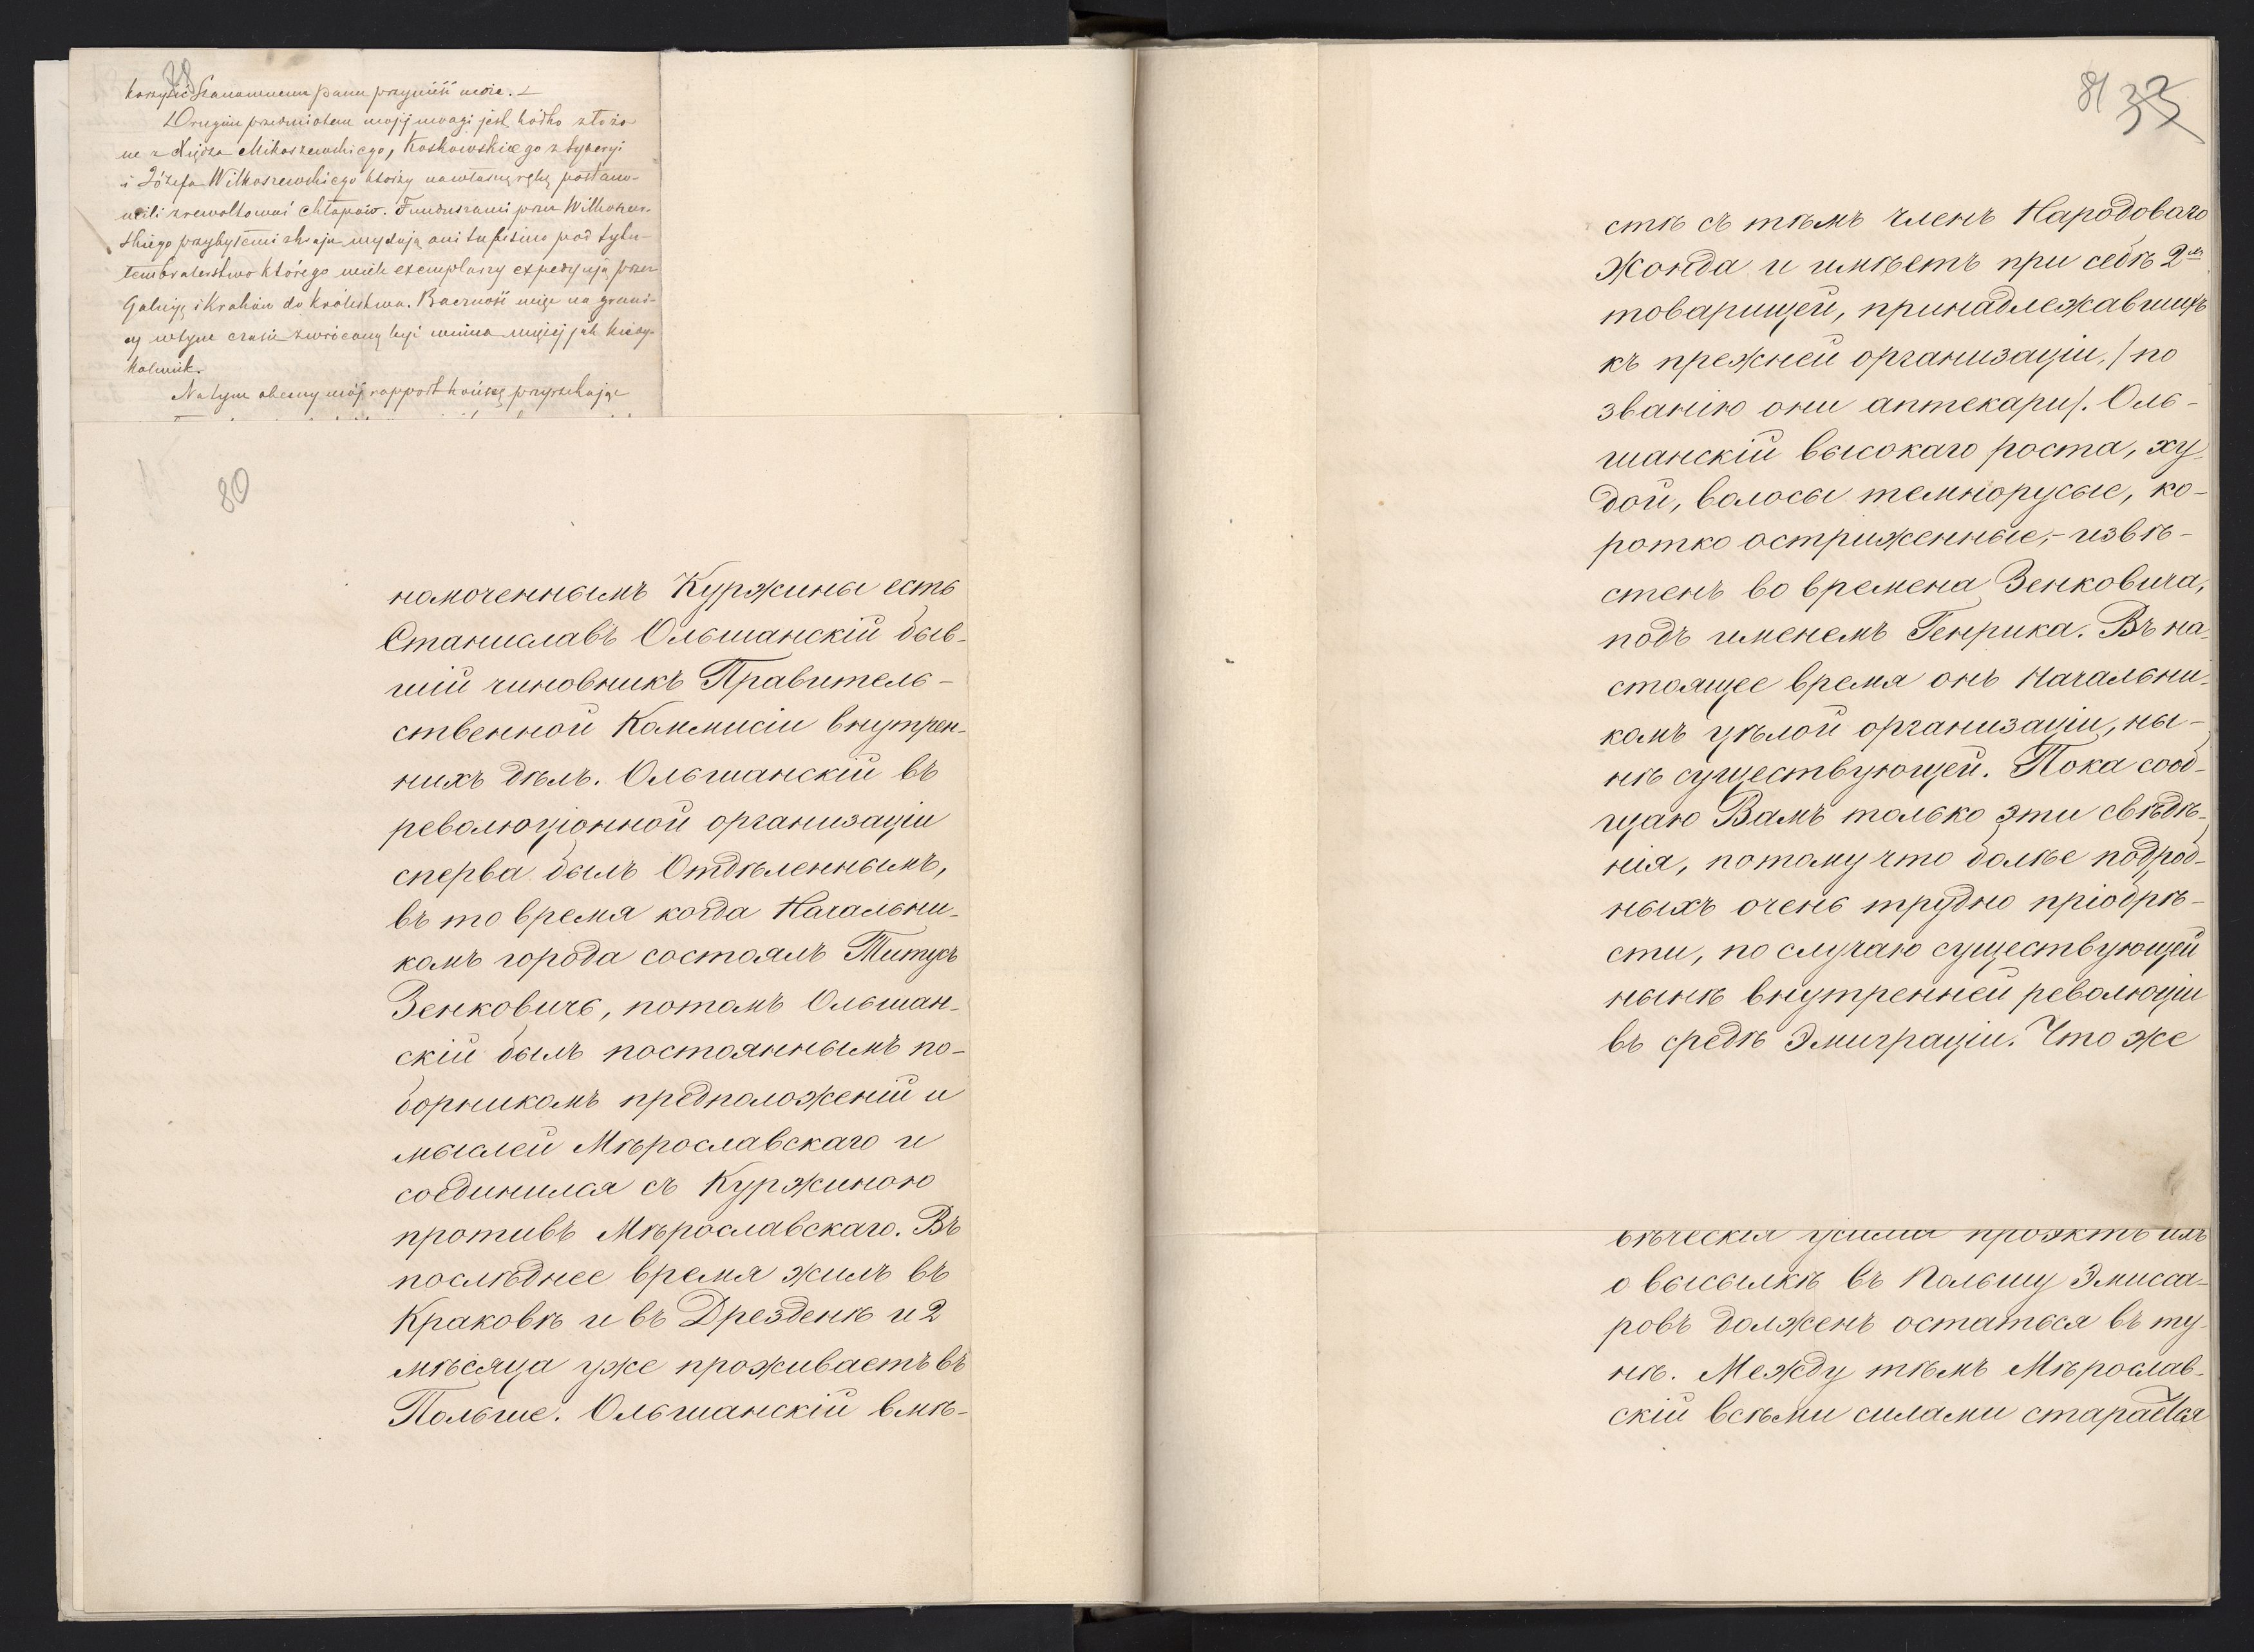 78
korzyść Szanownemu panu przynieść może.
Drugim przedmiotem mojej uwagi jest kółko złożo-
ne z Księdza Mikoszewskiego, Koskowskiego z Syberyi
i Józefa Wilkoszewskiego którzy na własną rękę postano-
wili zrewoltować chłopów. Funduszami przez Wilkoszew-
skiego przybyłemi z kraju wydają oni tu pismo pod tytu-
łem braterstwo którego wiele exemplarzy expedyują przez
Galicyę i Kraków do królestwa. Baczność więc na grani-
cy w tym czasie zwróconą być winna więcej jak kiedy-
kolwiek.
Na tym obecny mój rapport kończę przyrzekając
80
номоченнымъ Куржины есть
Станиславъ Ольшанскій быв-
шій чиновникъ Правитель-
ственной Коммисіи внутрен-
нихъ дѣлъ. Ольшанскій въ
революціонной организаціи
сперва былъ Отдѣленнымъ,
въ то время когда Начальни-
комъ города состоялъ Титусъ
Зенковичь, потомъ Ольшан-
скій былъ постояннымъ по-
борникомъ предположеній и
мыслей Мѣрославскаго и
соединился съ Куржиною
противъ Мѣрославскаго. Въ
послѣднее время жилъ въ
Краковѣ и въ Дрезденѣ и 2
мѣсяца уже проживаетъ въ
Польше. Ольшанскій вмѣ-
81 33
стѣ съ тѣмъ членъ Народоваго
Жонда и имѣетъ при себѣ 2хъ
товарищей, принадлежавшихъ
къ прежней организаціи, /по
званію они аптекари/. Оль-
шанскій высокаго роста, ху-
дой, волосы темнорусые, ко-
ротко остриженные,- извѣ-
стенъ во времена Зенковича,
подъ именемъ Генрика. Въ на-
стоящее время онъ Начальни-
комъ цѣлой организаціи, ны-
нѣ существующей. Пока сооб-
щаю Вамъ только эти свѣдѣ-
нія, потому что болѣе подроб-
ныхъ очень трудно пріобрѣ-
сти, по случаю существующей
нынѣ внутренней революціи
въ средѣ Эмиграціи. Что же
вѣческія усилія проэктъ ихъ
о высылкѣ въ Польшу Эмисса-
ровъ долженъ остаться въ ту-
нѣ. Между тѣмъ Мѣрослав-
скій всѣми силами старается